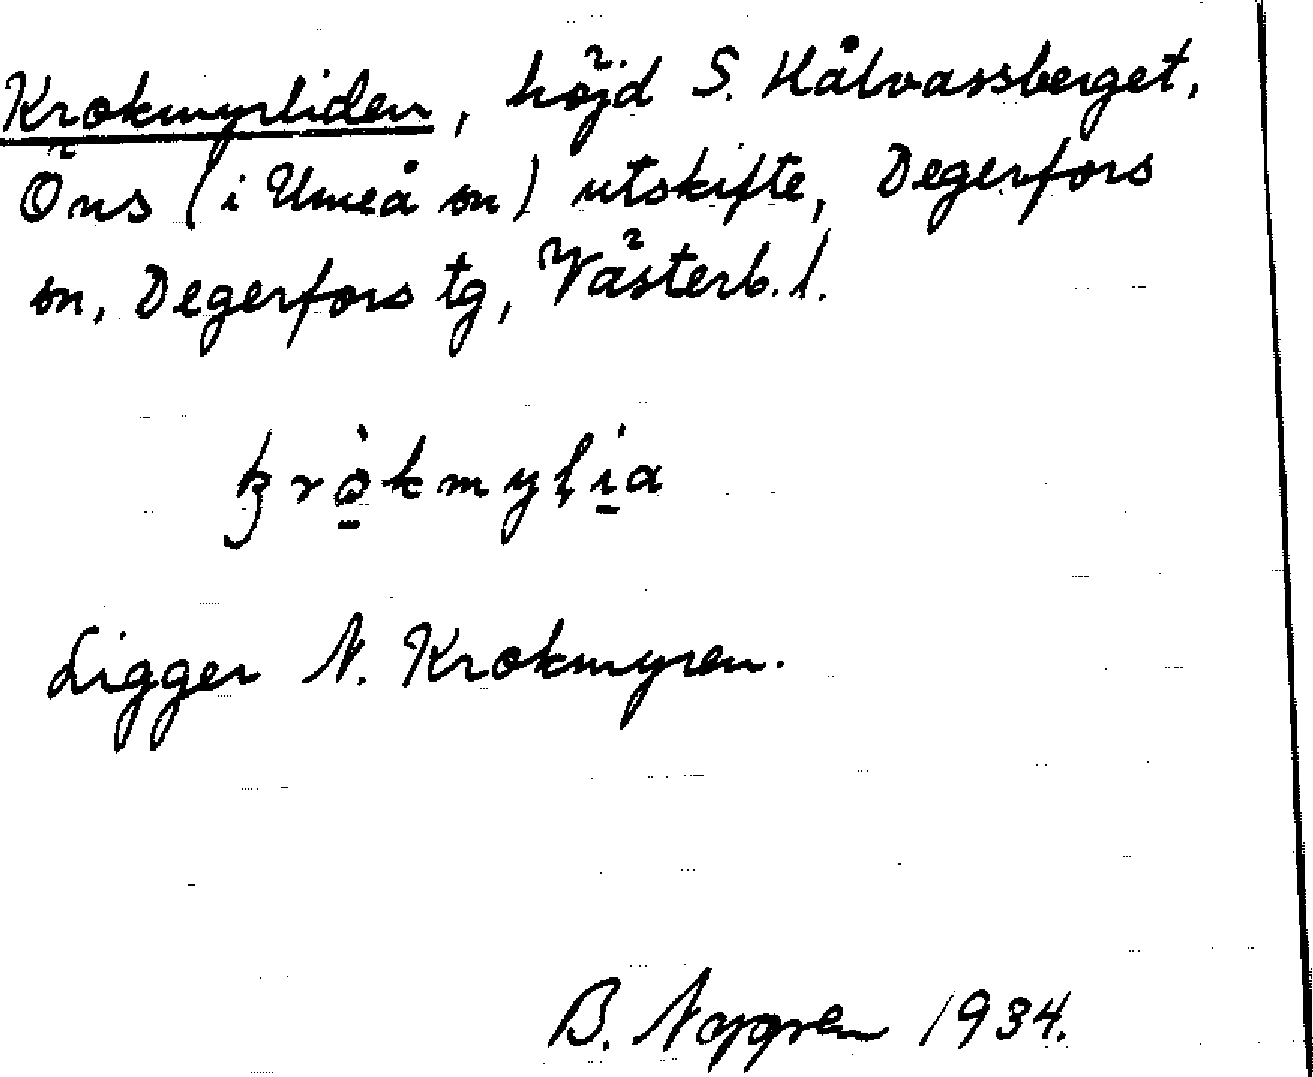 Krokmyrliden, höjd S. Kålvassberget,
Öns (i Umeå sn) utskifte, Degerfors
sn, Degerfors tg, Västerb. l.
krò̱kmyli̱a
Ligger N. Krokmyren.
B. 1934.